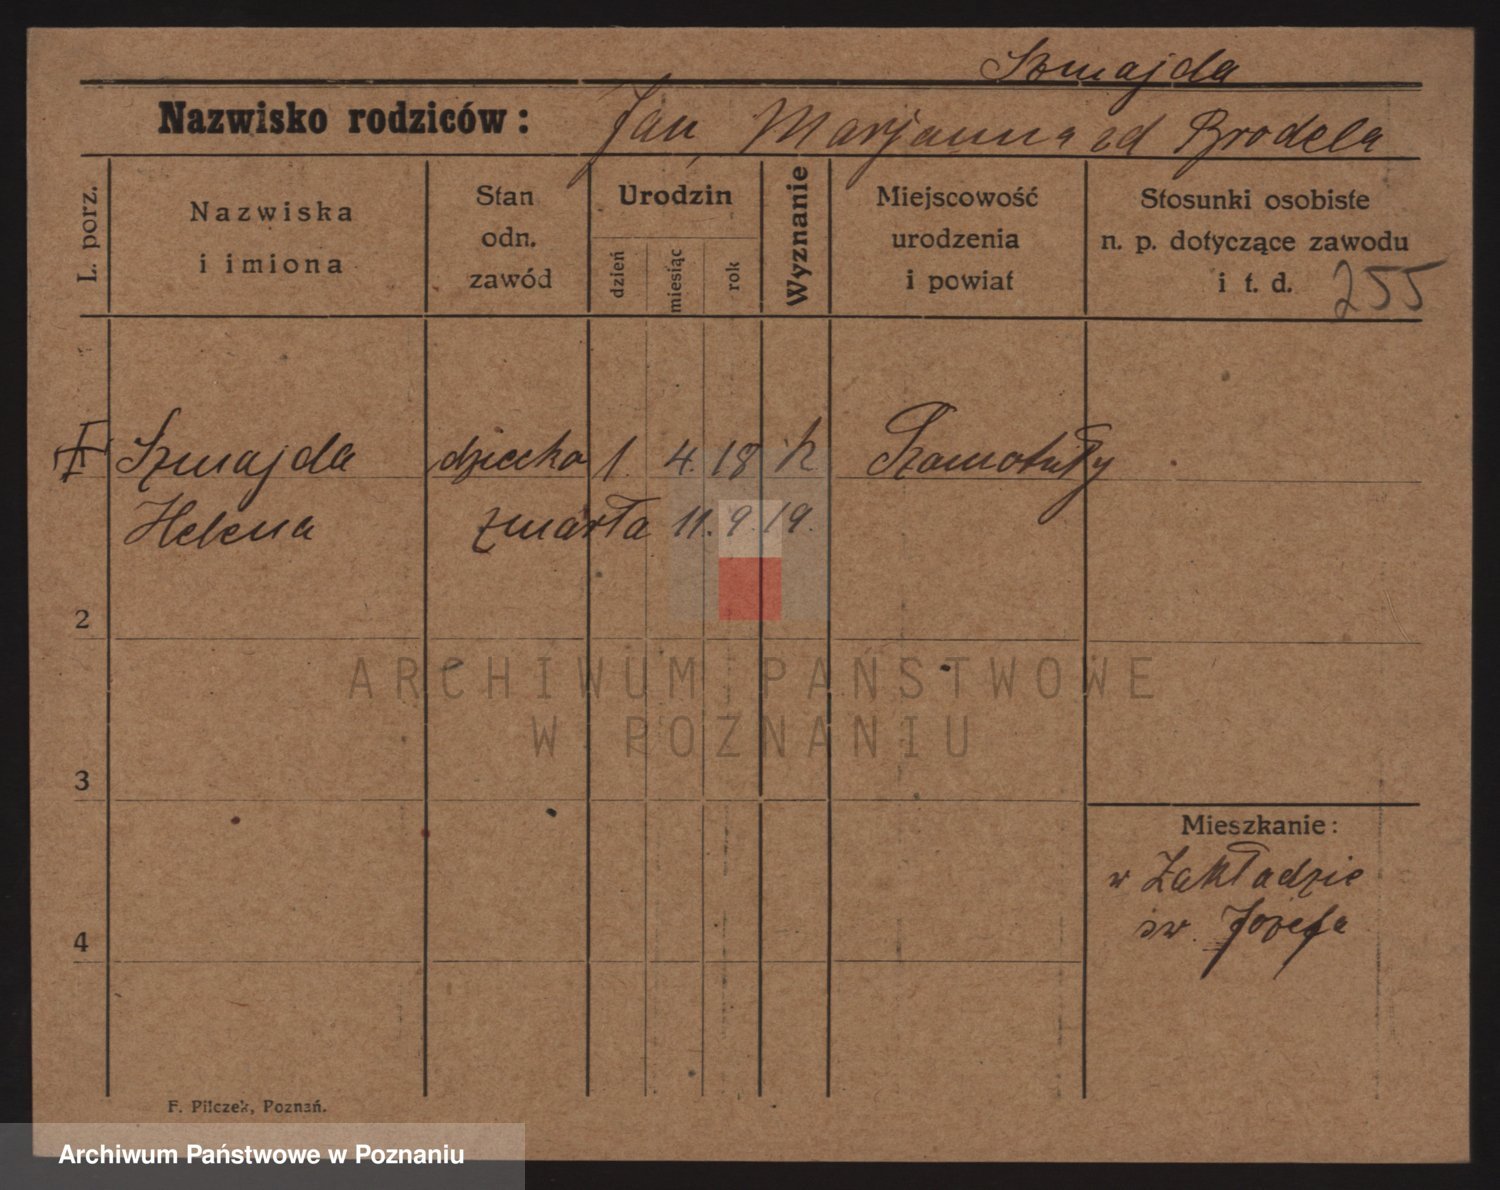 Szmajda
Nazwisko rodziców: Jan, Marjanna zd Brodela
L. porz.
Nazwiska i imiona
Stan odn. zawód
Urodzin
dzień
miesiąc
rok
Wyznanie
Miejscowość urodzenia i powiat
Stosunki osobiste n. p. dotyczące zawodu i t. d.
255
Szmajda dziecko 1. 4. 18 k Szamotuły
Helena zmarła 11. 9. 19.
2
3
4
Mieszkanie:
w Zakładzie
św. Józefa
ARCHIWUM PAŃSTWOWE
W POZNANIU
F. Pilczek, Poznań.
Archiwum Państwowe w Poznaniu